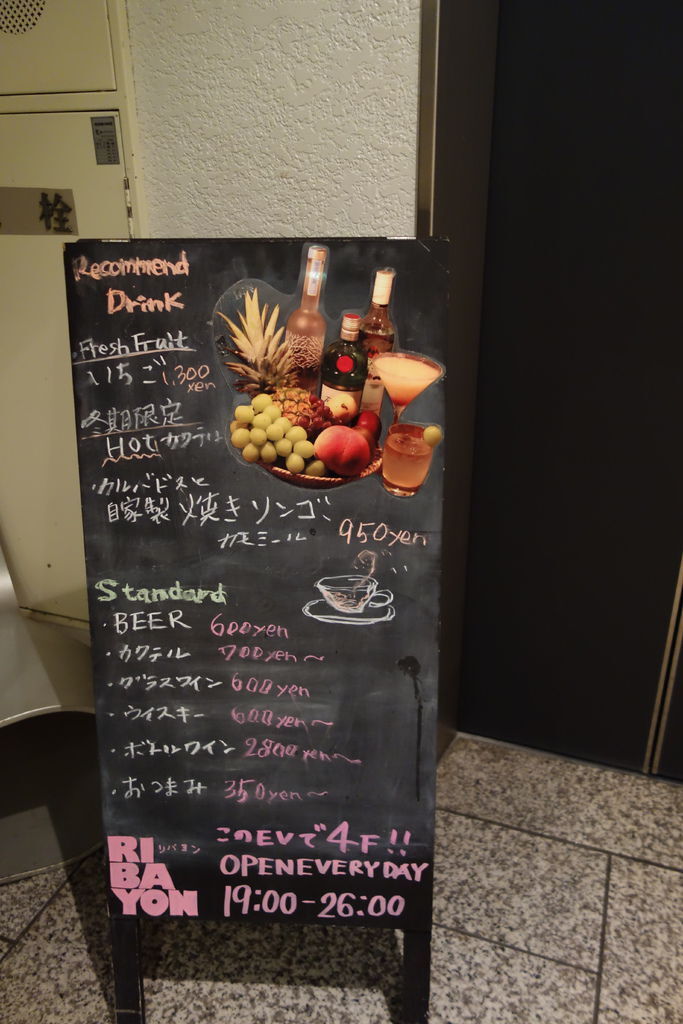 栓
Recommend
Drink
Fresh Fruit
いちご 1,300 yen
冬期限定
Hot カクテル
カルバドスと
自家製 焼きリンゴ
カモミール 950yen
Standard
・BEER 600yen
・カクテル 700yen〜
・グラスワイン 600yen
・ウイスキー 600yen〜
・ボトルワイン 2800yen〜
・おつまみ 350yen〜
RI
BA
YON
リバヨン
このEVで4F!!
OPENEVERYDAY
19:00-26:00